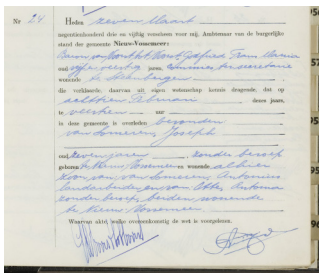 Nr 24
Heden zeven Maart
negentienhonderd drie en vijftig verscheen voor mij, Ambtenaar van de burgerlijke
stand der gemeente Nieuw-Vossemeer:
oud vijf en veertig jaren,
wonende te Steenbergen
die verklaarde, daarvan uit eigen wetenschap kennis dragende, dat op
achttien Februari dezes jaars,
te veertien uur
in deze gemeente is overleden bevonden
van Someren, Joseph
oud zeven jaren, zonder beroep
geboren te Nieuw Vossemeer en wonende alhier
zoon van van Someren, Antonius
landarbeider, en van Otten, Antonia
zonder beroep, beiden wonende
te Nieuw Vossemeer
Waarvan akte, welke overeenkomstig de wet is voorgelezen.